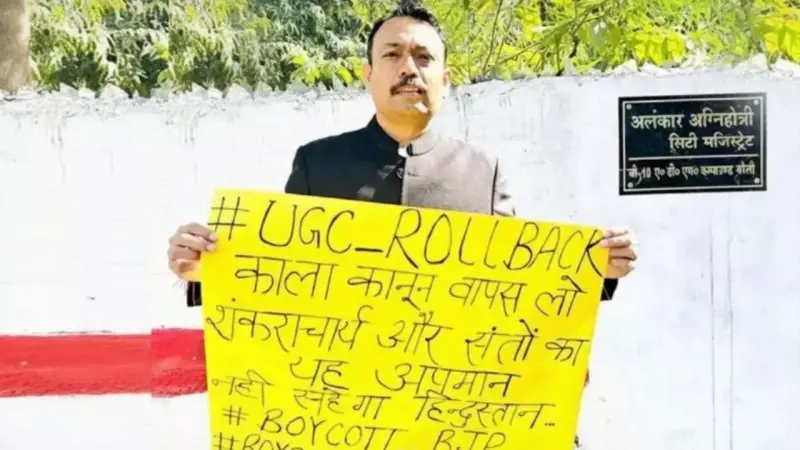 अलंकार अग्निहोत्री
सिटी मजिस्ट्रेट
बी-10 ए० डी० एम० कम्पाउण्ड
#UGC_ROLLBACK
काला कानून वापस लो
शंकराचार्य और संतों का
यह अपमान
नहीं सहेगा हिन्दुस्तान...
#BOYCOTT BJP